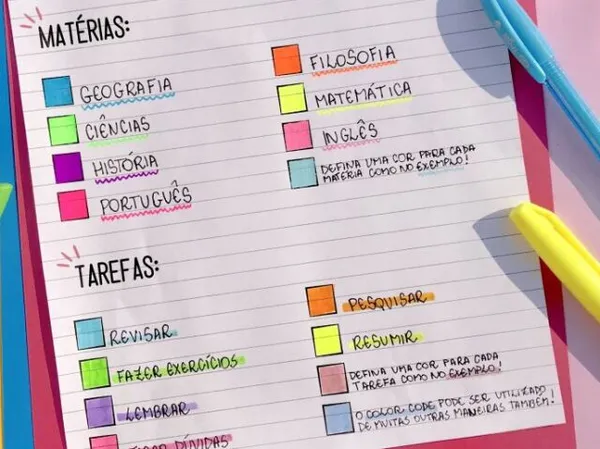 MATÉRIAS:
GEOGRAFIA
CIÊNCIAS
HISTÓRIA
PORTUGUÊS
FILOSOFIA
MATEMÁTICA
INGLÊS
DEFINA UMA COR PARA CADA
MATÉRIA COMO NO EXEMPLO!
TAREFAS:
REVISAR
FAZER EXERCÍCIOS
LEMBRAR
TIRAR DÚVIDAS
PESQUISAR
RESUMIR
DEFINA UMA COR PARA CADA
TAREFA COMO NO EXEMPLO!
O COLOR CODE PODE SER UTILIZADO
DE MUITAS OUTRAS MANEIRAS TAMBÉM!